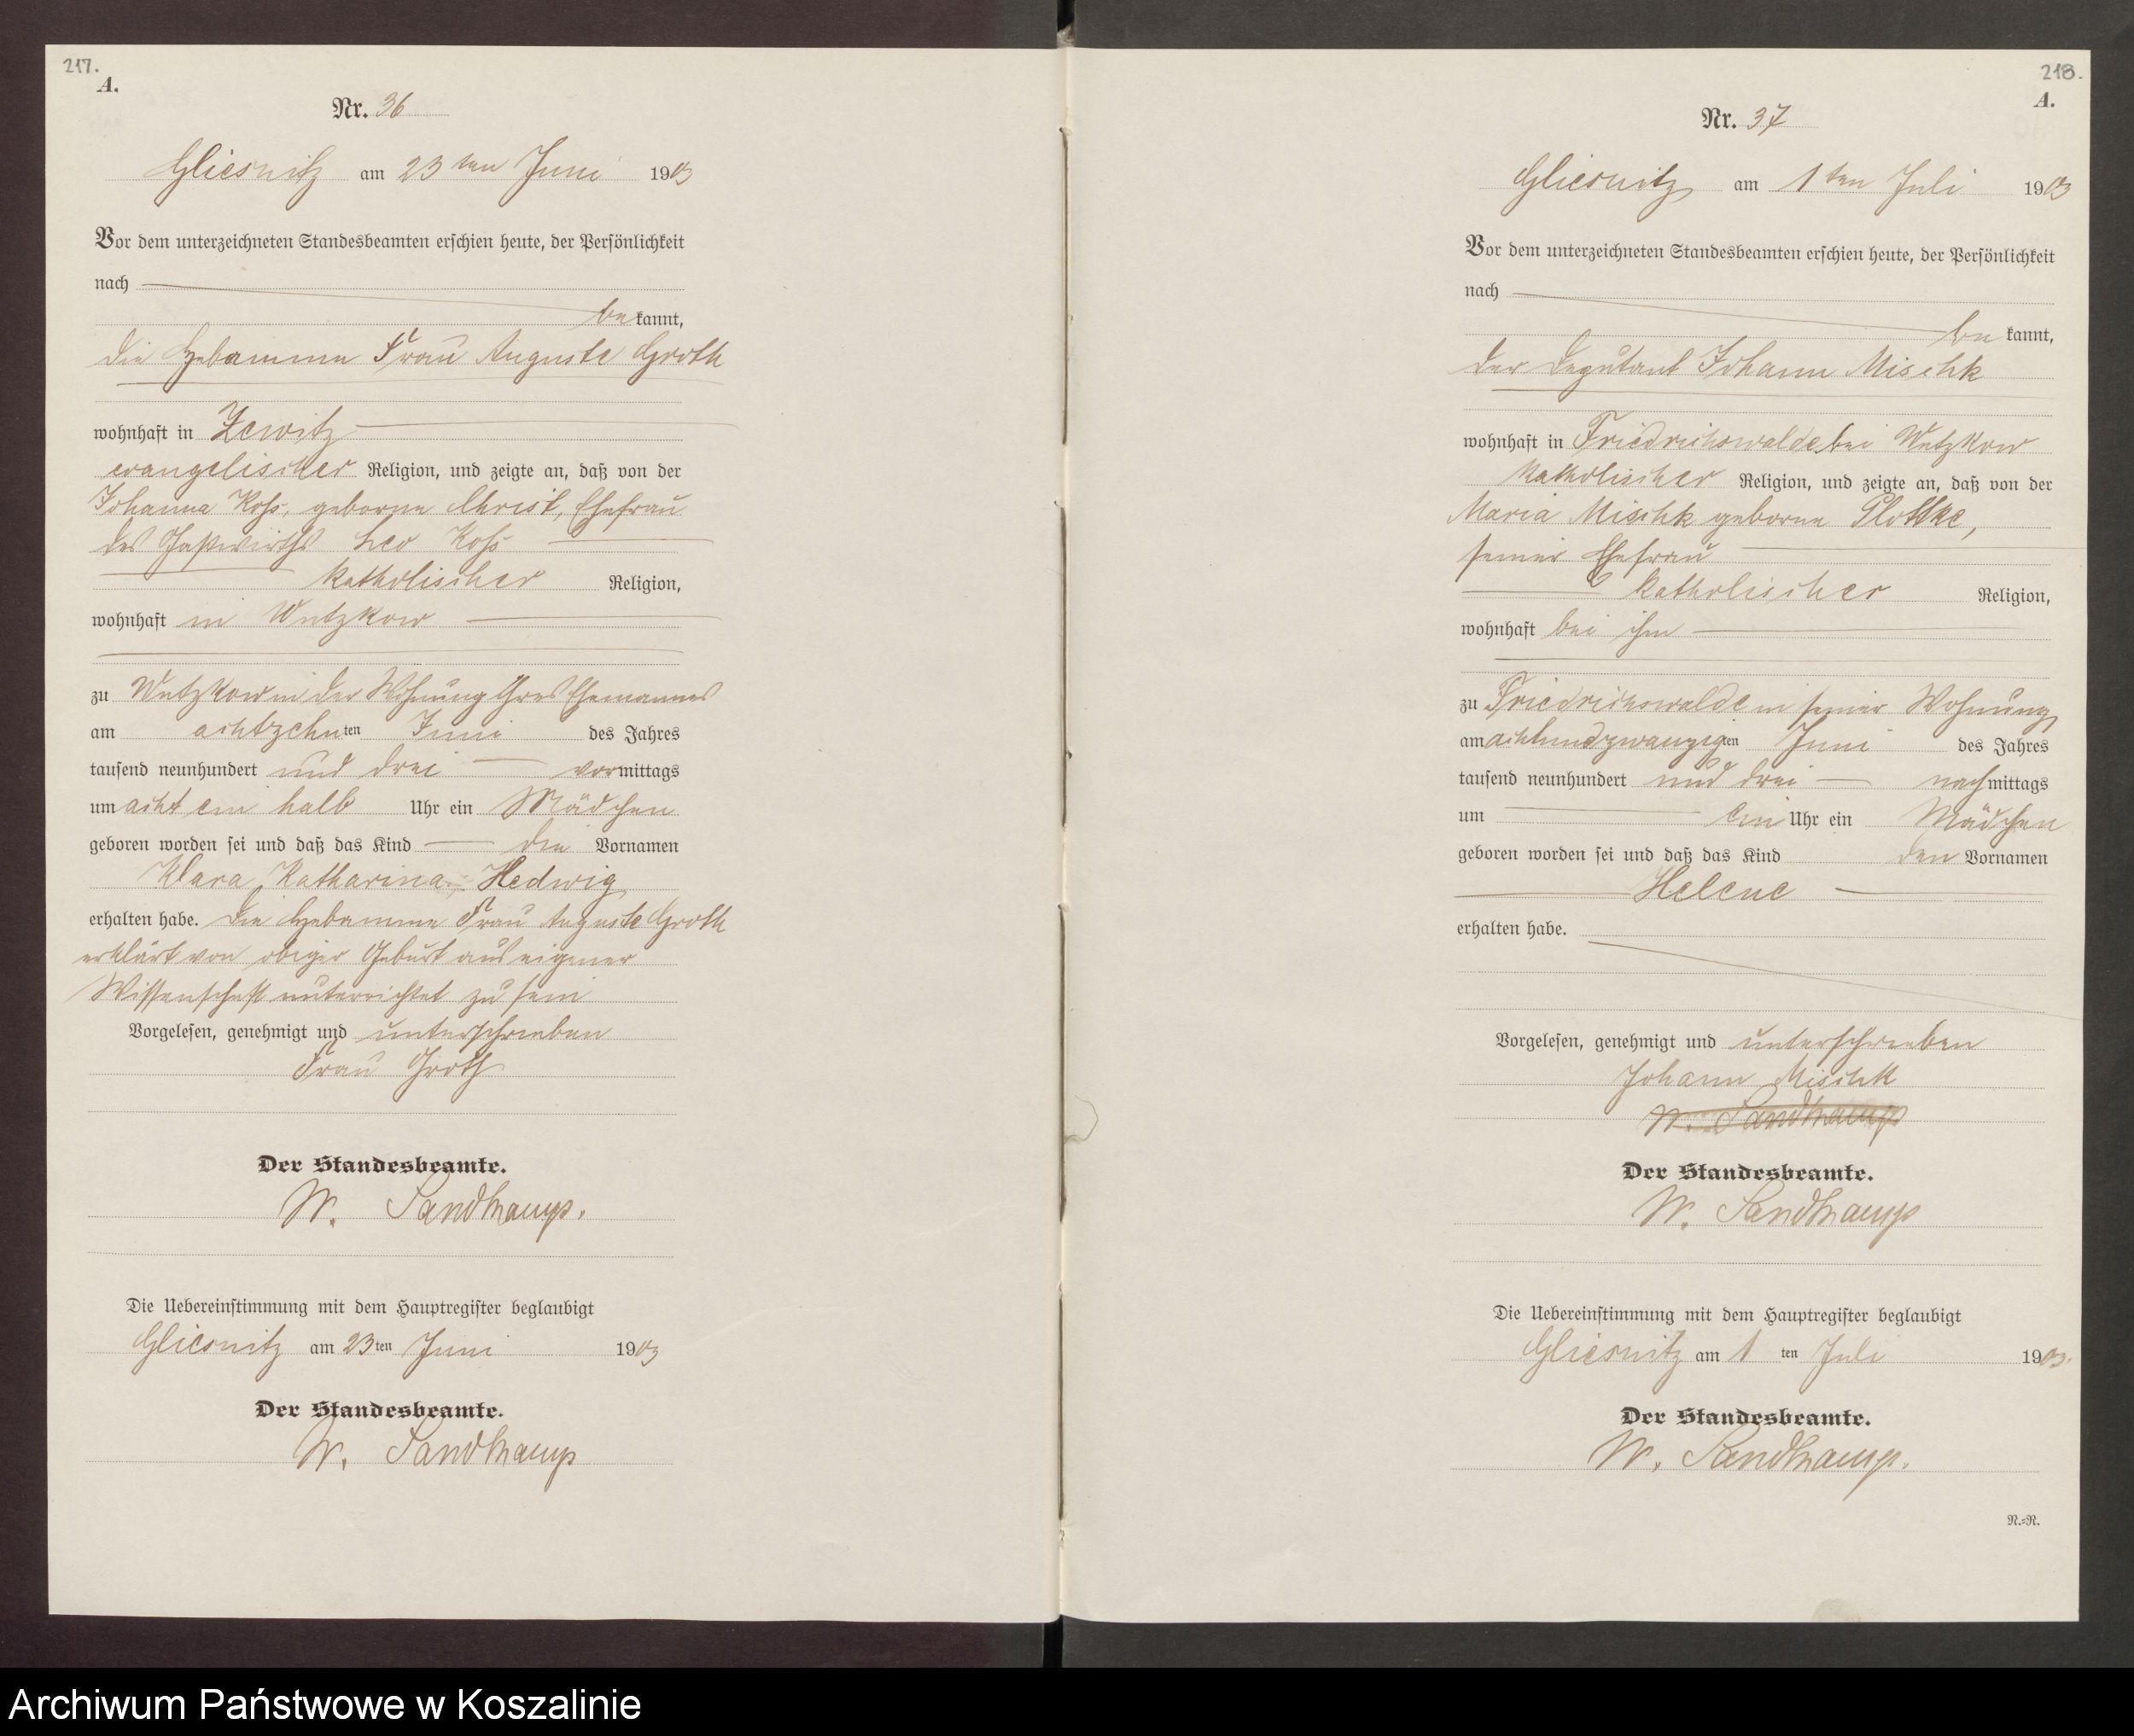 217.
A.
Nr. 36
Gliesnitz am 23ten Juni 1903
Vor dem unterzeichneten Standesbeamten erschien heute, der Persönlichkeit
nach
bekannt,
die Hebamme Frau Auguste Groth
wohnhaft in Zewitz
evangelischer Religion, und zeigte an, daß von der
Johanna Koß, geborne Christ, Ehefrau
des Gastwirths Leo Koß
katholischer Religion,
wohnhaft in Wutzkow
zu Wutzkow in der Wohnung ihres Ehemannes
am achtzehnten Juni des Jahres
tausend neunhundert und drei vormittags
um acht ein halb Uhr ein Mädchen
geboren worden sei und daß das Kind die Vornamen
Klara, Katharina, Hedwig
erhalten habe. Die Hebamme Frau Auguste Groth
erklärt von obiger Geburt aus eigener
Wissenschaft unterrichtet zu sein
Vorgelesen, genehmigt und unterschrieben
Frau Groth
Der Standesbeamte.
W. Sandkamp.
Die Uebereinstimmung mit dem Hauptregister beglaubigt
Gliesnitz am 23ten Juni 1903
Der Standesbeamte.
W. Sandkamp
218.
A.
Nr. 37
Gliesnitz am 1ten Juli 1903
Vor dem unterzeichneten Standesbeamten erschien heute, der Persönlichkeit
nach
bekannt,
der Deputant Johann Mischk
wohnhaft in Friedrichswalde bei Wutzkow
katholischer Religion, und zeigte an, daß von der
Maria Mischk geborne Plottke,
seiner Ehefrau
katholischer Religion,
wohnhaft bei ihm
zu Friedrichswalde in seiner Wohnung
am achtundzwanzigten Juni des Jahres
tausend neunhundert und drei nachmittags
um ein Uhr ein Mädchen
geboren worden sei und daß das Kind den Vornamen
Helene
erhalten habe.
Vorgelesen, genehmigt und unterschrieben
Johann Mischk
W. Sandkamp
Der Standesbeamte.
W. Sandkamp
Die Uebereinstimmung mit dem Hauptregister beglaubigt
Gliesnitz am 1 ten Juli 1903.
Der Standesbeamte.
W. Sandkamp.
R.=R.
Archiwum Państwowe w Koszalinie